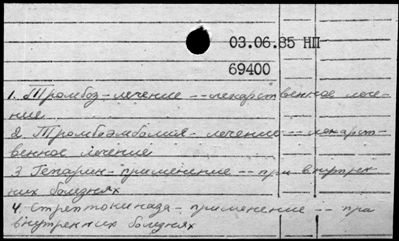 03.06.85 НП
69400
1. Тромбоз - лечение -- лекарственное лече-
ние
2. Тромбоэмболия - лечение -- лекарст-
венное лечение
3. Гепарин - применение -- при внутрен-
них болезнях
4. Стрептокиназа - применение -- при
внутренних болезнях